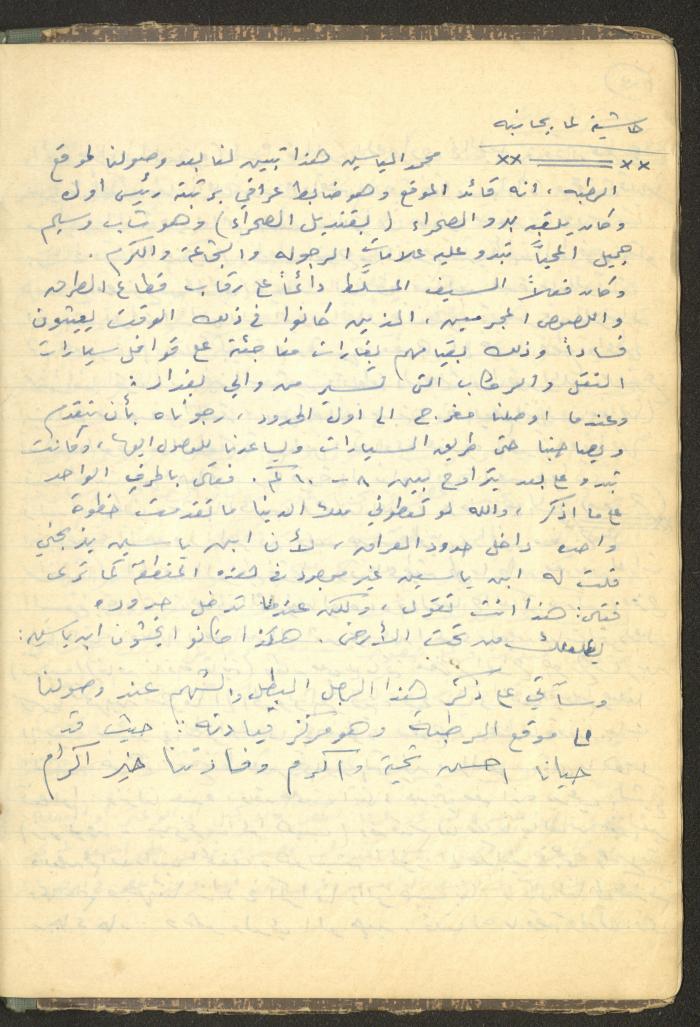 حاشية لما بجانبه
×× ــــــ ××
محمد الياسين هذا تبين لنا بعد وصولنا لموقع
الرطبه، انه قائد الموقع وهو ضابط عراقي برتبة رئيس اول
وكان يلقبه بدو الصحراء (بقنديل الصحراء) وهو شاب وسيم
جميل المحياً تبدو عليه علامات الرجوله والشجاعة والكرم.
وكان فعلاً السيف المسلَّط دائماً على رقاب قطاع الطرق
واللصوص المجرمين، الذين كانوا في ذلك الوقت يعيثون
فساداً وذلك بقيامهم بغارات مفاجئة على قوافل سيارات
النقل والركاب التي تسير من والى بغداد:
وعندما اوصلنا مفرج الى اول الحدود، رجوناه بأن يتقدم
ويصاحبنا حتى طريق السيارات ويساعدنا للوصول اليها، وكانت
تبدو على بعد يتراوح بين ٨ - ١٠ كم. فقال بالحرف الواحد
على ما اذكر، والله لو تعطوني ملك الدينا ما تقدمت خطوة
واحده داخل حدود العراق، لأن ابن ياسين يذبحني
قلت له ابن ياسين غير موجود في هذه المنطقة كما ترى
فقال: هذا انت تقول، ولكن عندما تدخل حدوده
يطلعلك من تحت الأرض. هكذا كانوا يخشون ابن ياسين:
وسآتي على ذكر هذا الرجل البطل والشهم عند وصولنا
الى موقع الرطبة وهو مركز قيادته: حيث قد
حيانا احسن تحية واكرم وفادتنا خير اكرام